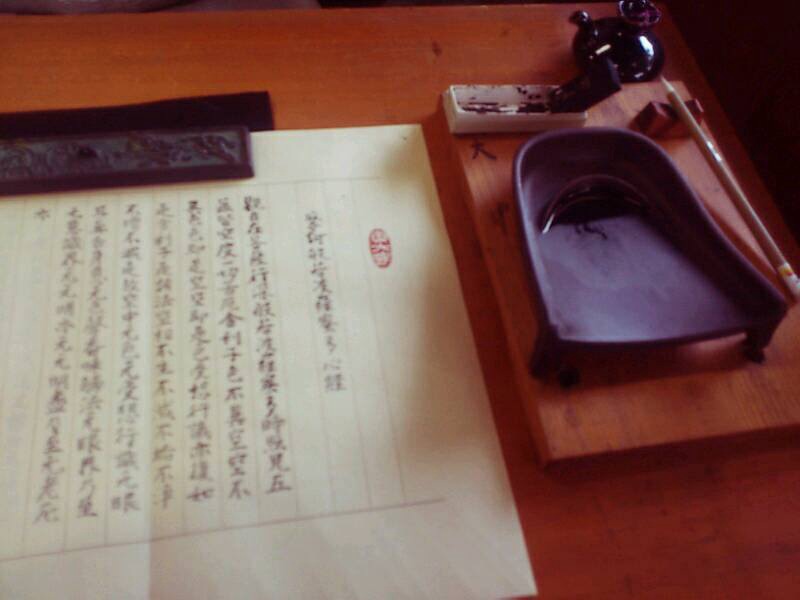 摩訶般若波羅蜜多心経
観自在菩薩行深般若波羅蜜多時照見五
蘊皆空度一切苦厄舎利子色不異空空不
異色色即是空空即是色受想行識亦復如
是舎利子是諸法空相不生不滅不垢不浄
不増不減是故空中无色无受想行識无眼
耳鼻舌身意无色聲香味觸法无眼界乃至
无意識界无无明亦无无明盡乃至无老死
天